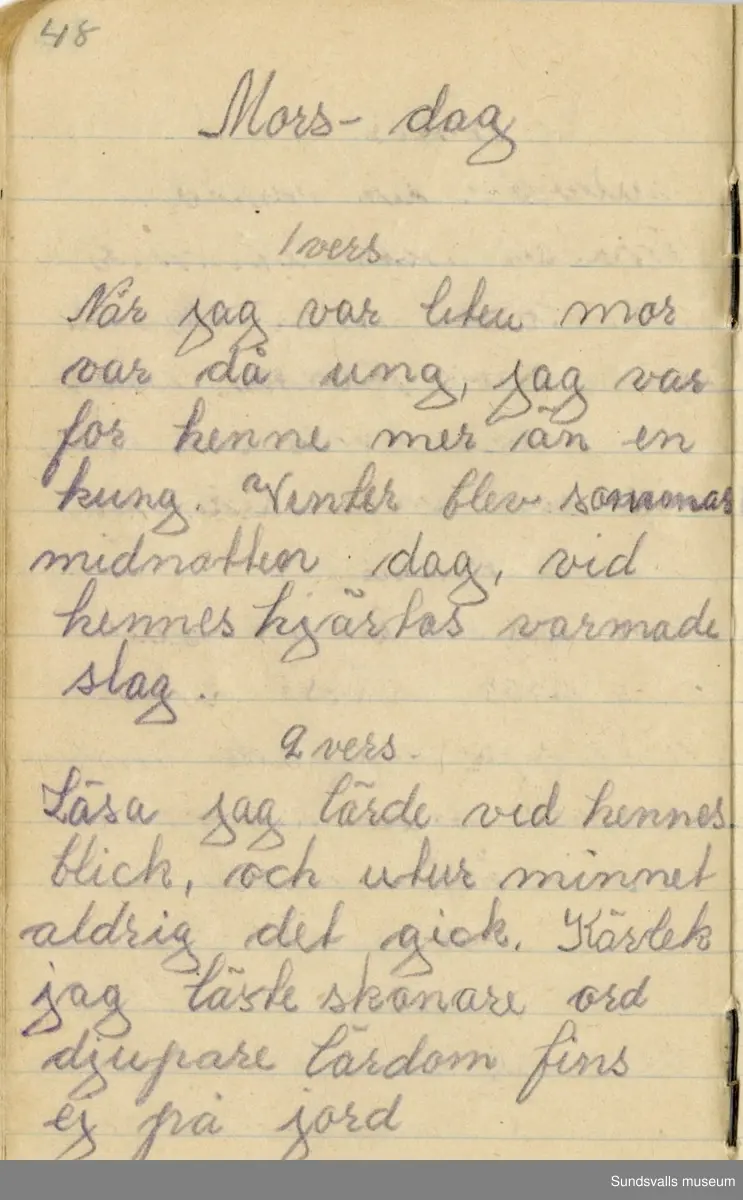 48
Mors- dag
1 vers
När jag var liten mor
var då ung, jag var
for henne mer än en
kung. Vinter blev sommar
midnatten dag, vid
hennes hjärtas varmade
slag.
2 vers.
Läsa jag lärde vid hennes
blick, och utur minnet
aldrig det gick. Kärlek
jag läste skonare ord
djupare lärdom fins
ej på jord
Sundsvalls museum